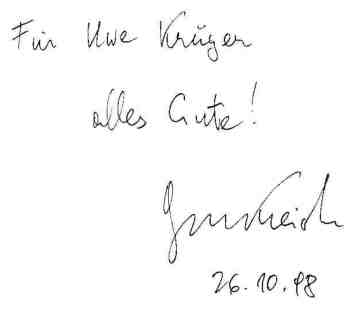 Für Uwe Krüger
alles Gute!
26.10.98